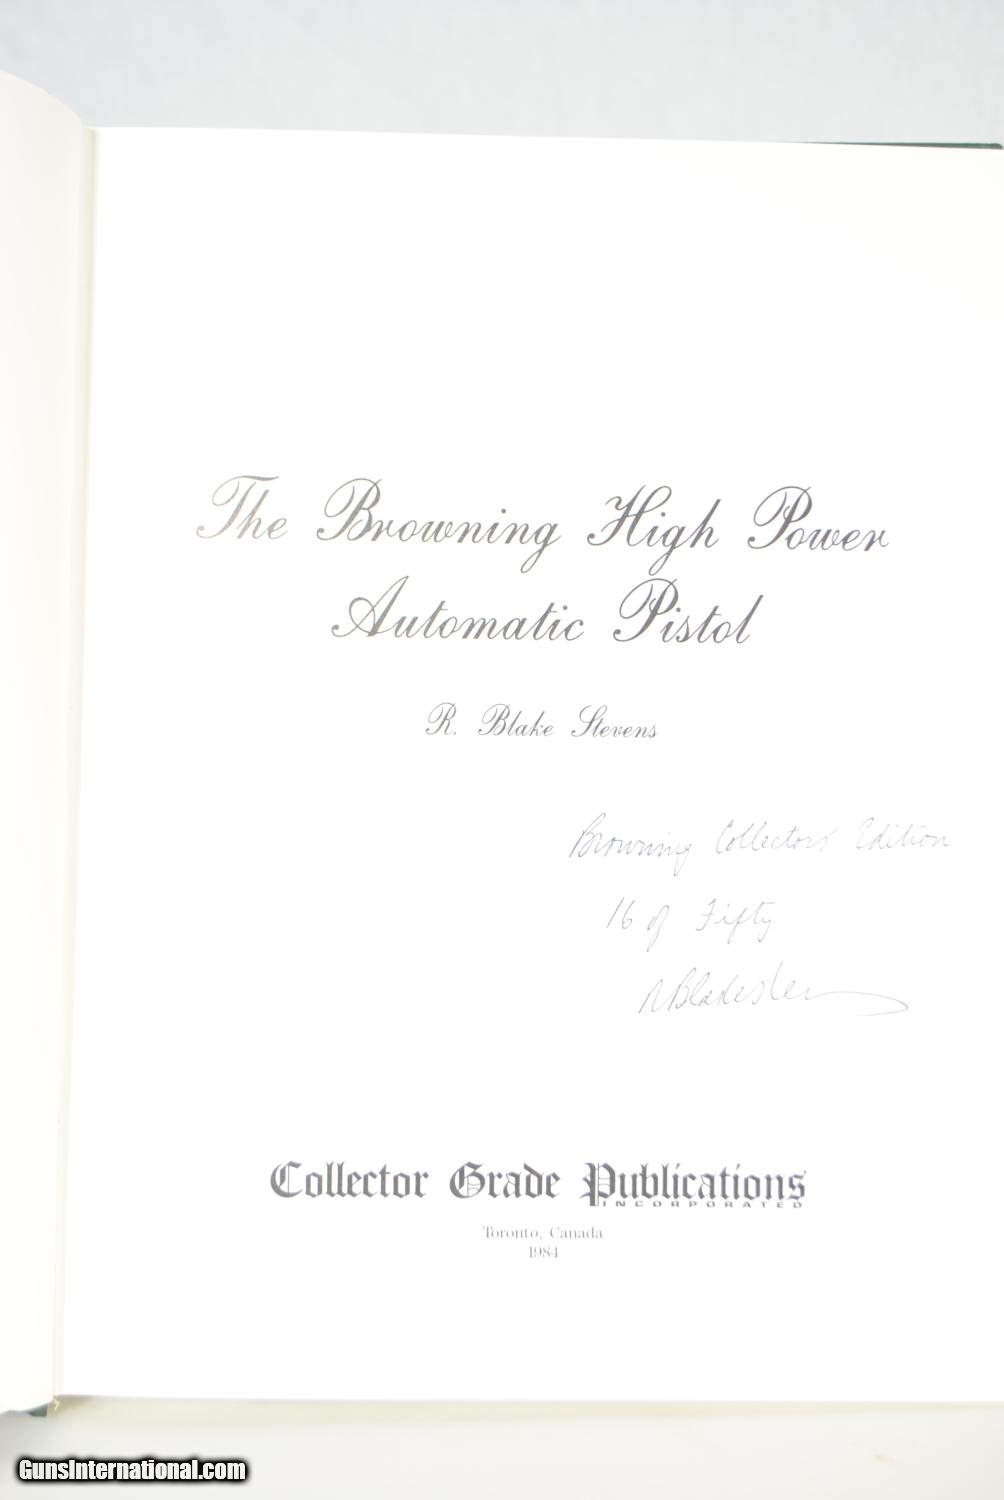 The Browning High Power
Automatic Pistol
R. Blake Stevens
Browning Collectors' Edition
16 of Fifty
RBlakeSteven
Collector Grade Publications
INCORPORATED
Toronto, Canada
1984
GunsInternational.com